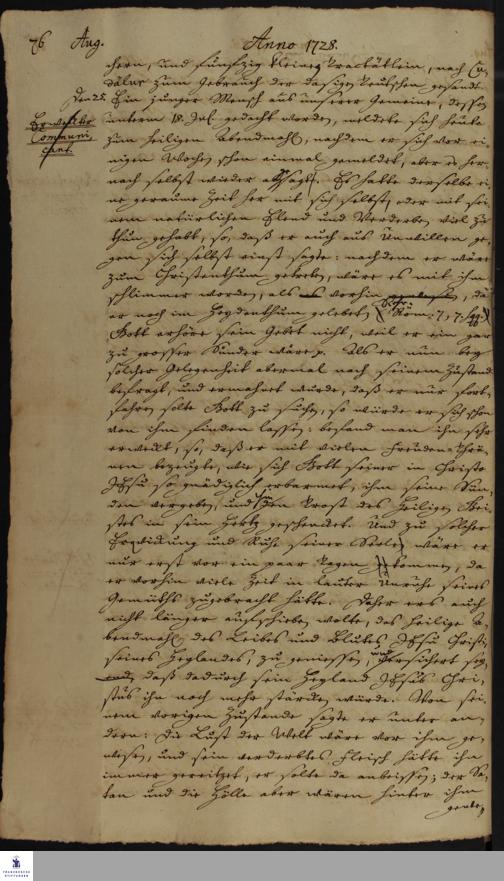 76 Aug. Anno 1728.
chern, und funfzig kleine Tractätlein, nach Cu-
dalur zum Gebrauch der dasigen Teutschen gesandt.
Den 25. Ein junger Mensch aus unserer Gemeine, dessen
unterm 18. Jul. gedacht worden, meldete sich heute
Communi-
cant.
zum heiligen Abendmahl, nachdem er sich vor ei-
nigen Wochen schon einmal gemeldet, aber es her-
nach selbst wieder abgesagt. Es hatte derselbe ei-
ne geraume Zeit her mit sich selbst, oder mit sei-
nem natürlichen Elend und Verderben viel zu
thun gehabt, so, daß er auch aus Unwillen ge-
gen sich selbst einst sagte: nachdem er wäre
zum Christenthum getreten, wäre es mit ihm
schlimmer worden, als vorhin, da
er noch im Heydenthum gelebet, Röm: 7, 7. sqq.
Gott erhöre sein Gebet nicht, weil er ein gar
zu grosser Sünder wäre p. Als er nun bey
solcher Gelegenheit abermal nach seinem Zustand
befragt, und ermahnet wurde, daß er nur fort-
fahren solte Gott zu suchen, so würde er sich schon
von ihm finden lassen: befand man ihn sehr
erweckt, so, daß er mit vielen Freuden-Thrä-
nen bezeugte, wie sich Gott seiner in Christo
JEsu so gnädiglich erbarmet, ihm seine Sün-
den vergeben, und ihm den Trost des Heiligen Gei-
stes in sein Hertz geschencket. Und zu solcher
Erquickung und Ruhe seiner Seelen wäre er
nur erst vor ein paar Tagen gekommen, da
er vorhin viele Zeit in lauter Unruhe seines
Gemüths zugebracht hätte. Daher er es auch
nicht länger aufschieben wolte, das heilige A-
bendmahl des Leibes und Blutes JEsu Christi,
seines Heylandes, zu geniessen, und versichert sey
daß dadurch sein Heyland JEsus Chri-
stus ihn noch mehr stärcken würde. Von sei-
nem vorigen Zustande sagte er unter an-
dern: die Lust der Welt wäre vor ihm ge-
wesen, und sein verderbtes Fleisch hätte ihn
immer gereitzet, er solte da anbeissen; der Sa-
tan und die Hölle aber wären hinter ihm
FRANCKESCHE
STIFTUNGEN